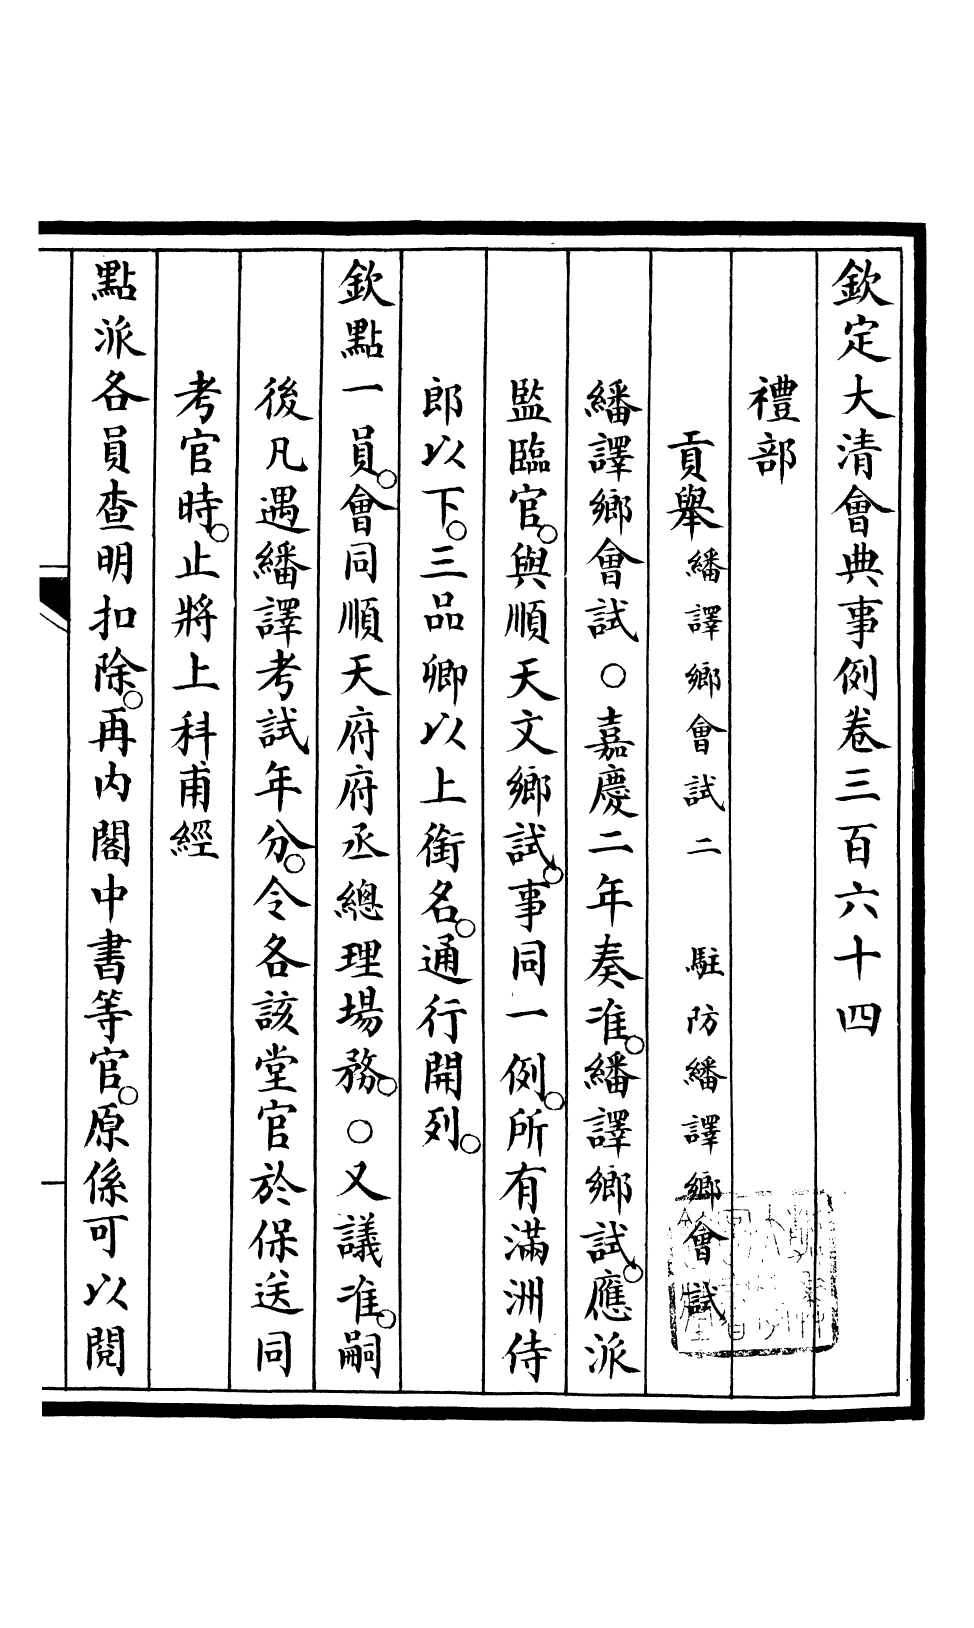 欽定大清會典事例卷三百六十四
禮部
貢舉繙譯鄉會試二　駐防繙譯鄉會試
繙譯鄉會試○嘉慶二年奏准。繙譯鄉試。應派
監臨官。與順天文鄉試。事同一例。所有滿洲侍
郎以下。三品卿以上銜名。通行開列。
欽點一員。會同順天府府丞總理場務。○又議准。嗣
後凡遇繙譯考試年分。令各該堂官於保送同
考官時。止將上科甫經
點派各員查明扣除。再內閣中書等官。原係可以閱